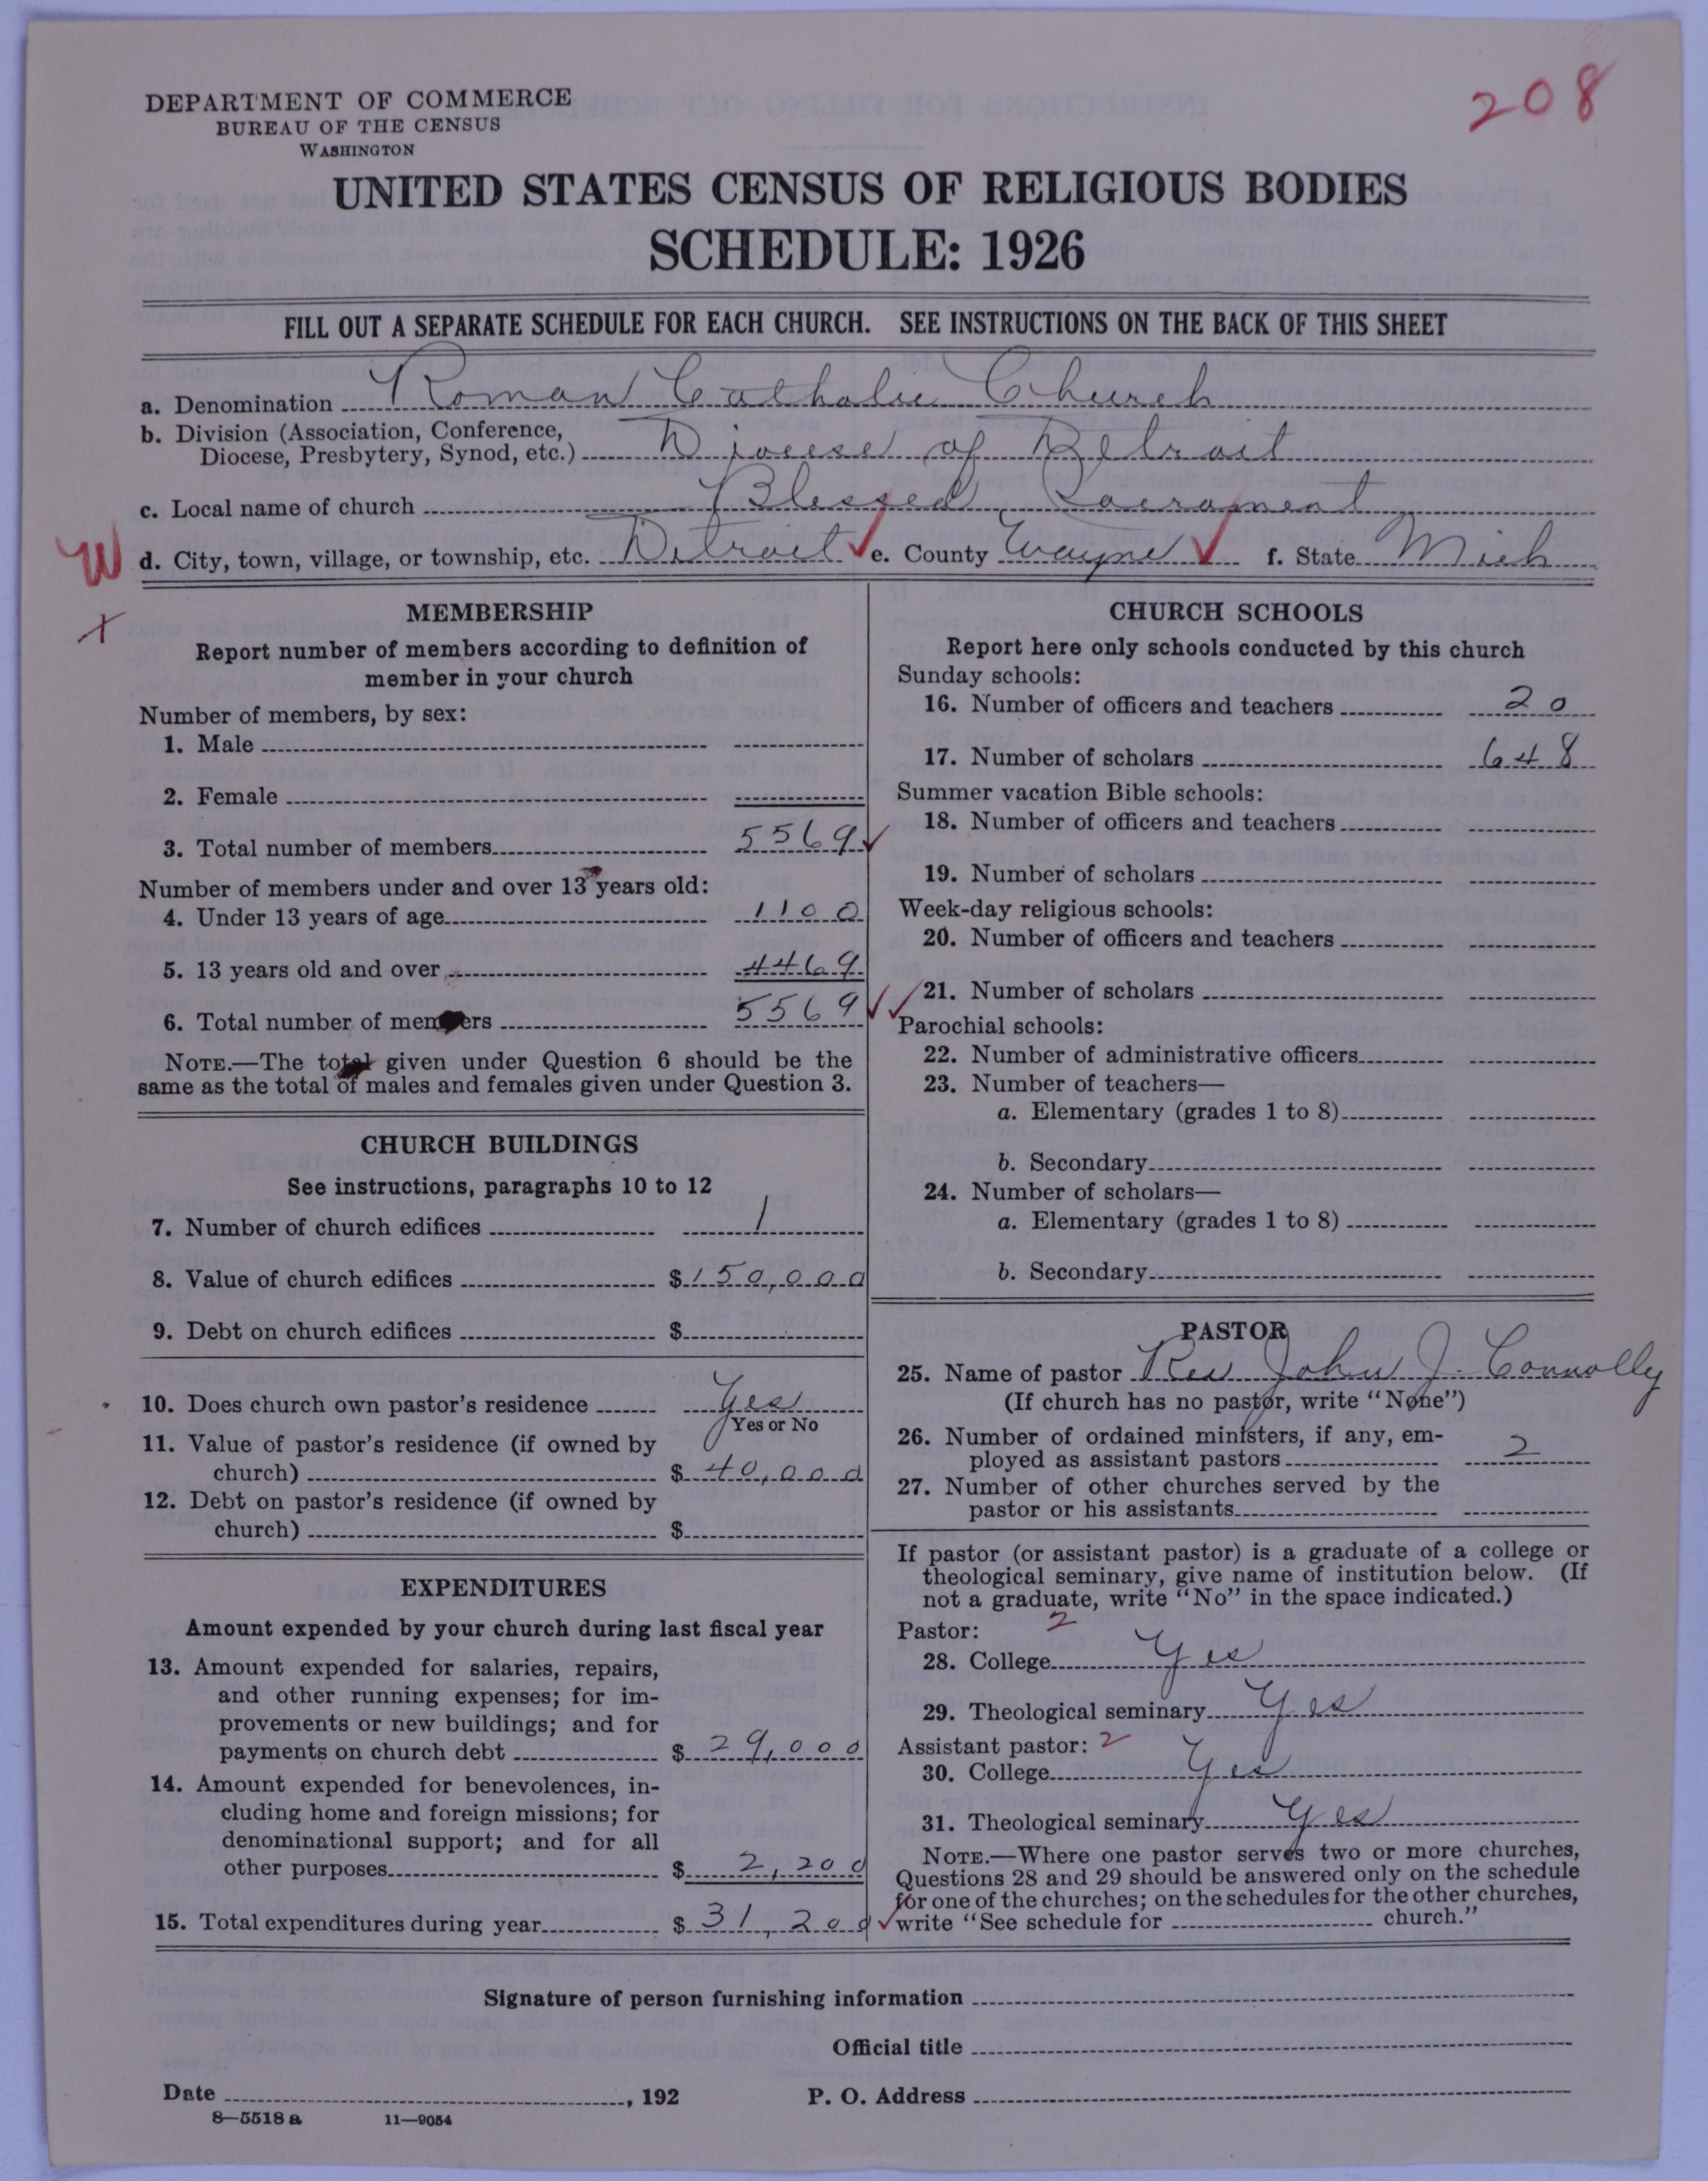 208
DEPARTMENT OF COMMERCE
BUREAU OF THE CENSUS
WASHINGTON
UNITED STATES CENSUS OF RELIGIOUS BODIES
SCHEDULE: 1926
FILL OUT A SEPARATE SCHEDULE FOR EACH CHURCH. SEE INSTRUCTIONS ON THE BACK OF THIS SHEET
a. Denomination Roman Catholic Church
b. Division (Association, Conference,
Diocese, Presbytery, Synod, etc.) Diocese of Detroit
c. Local name of church Blessed Sacrament
W d. City, town, village, or township, etc. Detroit ✓ e. County Wayne ✓ f. State Mich
x
MEMBERSHIP
Report number of members according to definition of
member in your church
Number of members, by sex:
1. Male
2. Female
3. Total number of members 5569 ✓
Number of members under and over 13 years old:
4. Under 13 years of age 1100
5. 13 years old and over 4469
6. Total number of members 5569 ✓✓
NOTE.—The total given under Question 6 should be the
same as the total of males and females given under Question 3.
CHURCH BUILDINGS
See instructions, paragraphs 10 to 12
7. Number of church edifices 1
8. Value of church edifices $150,000
9. Debt on church edifices $
10. Does church own pastor's residence Yes
Yes or No
11. Value of pastor's residence (if owned by
church) $ 40,000
12. Debt on pastor's residence (if owned by
church) $
EXPENDITURES
Amount expended by your church during last fiscal year
13. Amount expended for salaries, repairs,
and other running expenses; for im-
provements or new buildings; and for
payments on church debt $ 29,000
14. Amount expended for benevolences, in-
cluding home and foreign missions; for
denominational support; and for all
other purposes $ 2,200
15. Total expenditures during year $ 31,200 ✓
CHURCH SCHOOLS
Report here only schools conducted by this church
Sunday schools:
16. Number of officers and teachers 20
17. Number of scholars 648
Summer vacation Bible schools:
18. Number of officers and teachers
19. Number of scholars
Week-day religious schools:
20. Number of officers and teachers
21. Number of scholars
Parochial schools:
22. Number of administrative officers
23. Number of teachers—
a. Elementary (grades 1 to 8)
b. Secondary
24. Number of scholars—
a. Elementary (grades 1 to 8)
b. Secondary
PASTOR
25. Name of pastor Rev John J. Connolly
(If church has no pastor, write "None")
26. Number of ordained ministers, if any, em-
ployed as assistant pastors 2
27. Number of other churches served by the
pastor or his assistants
If pastor (or assistant pastor) is a graduate of a college or
theological seminary, give name of institution below. (If
not a graduate, write "No" in the space indicated.)
Pastor: 2
28. College Yes
29. Theological seminary Yes
Assistant pastor: 2
30. College Yes
31. Theological seminary Yes
NOTE.—Where one pastor serves two or more churches,
Questions 28 and 29 should be answered only on the schedule
for one of the churches; on the schedules for the other churches,
write "See schedule for church."
Signature of person furnishing information
Official title
Date , 192 P. O. Address
8—5518 a 11—9054